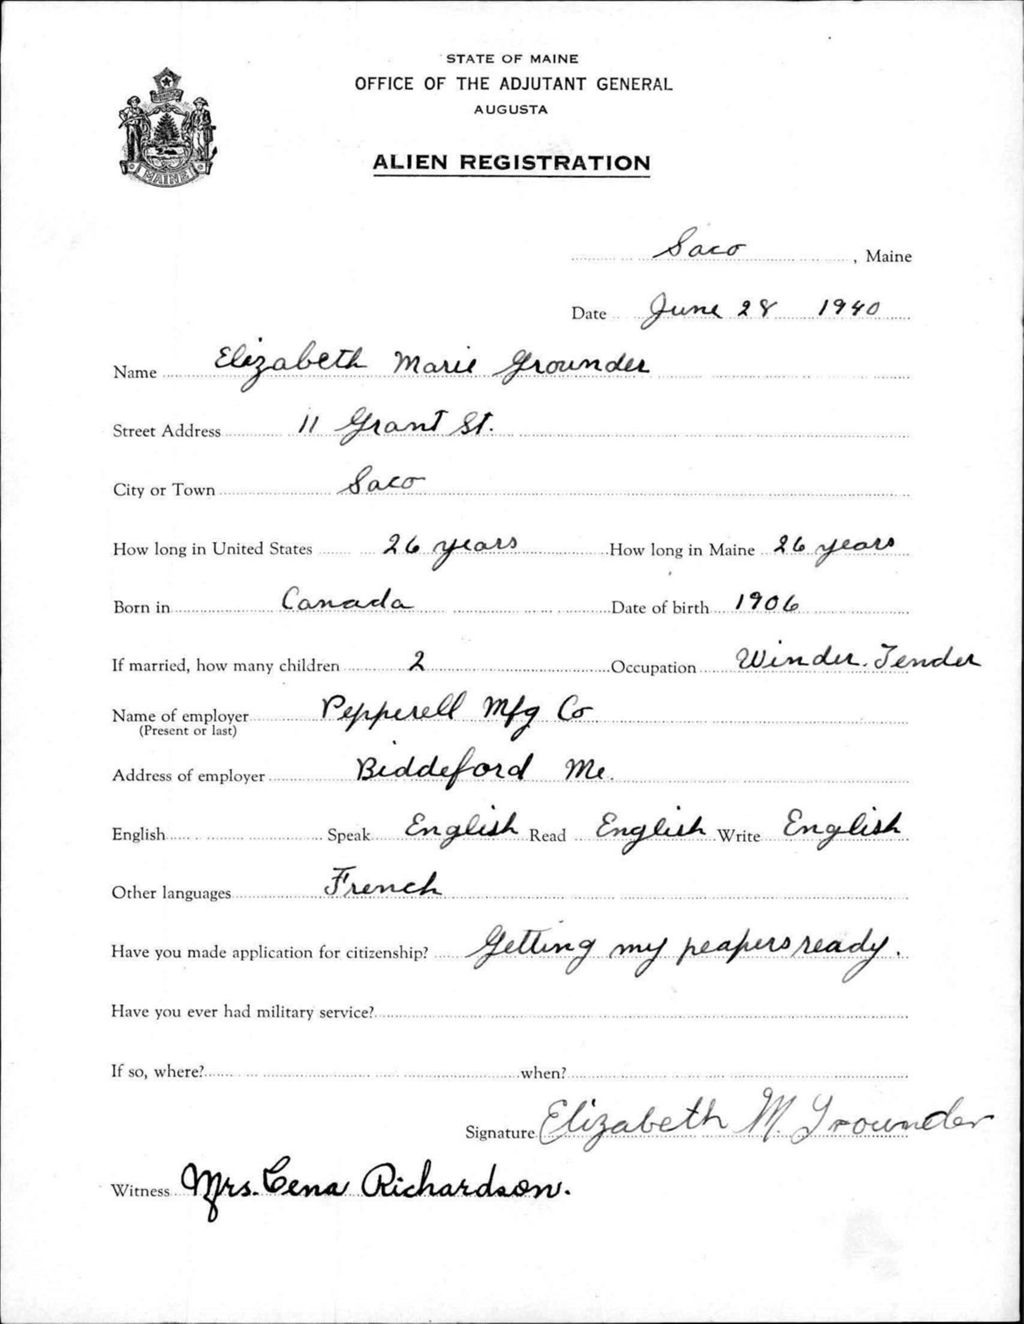 STATE OF MAINE
OFFICE OF THE ADJUTANT GENERAL
AUGUSTA
ALIEN REGISTRATION
MAINE
Saco, Maine
Date June 28 1940
Name Elizabeth Marie Grounder
Street Address 11 Grant St.
City or Town Saco
How long in United States 26 years How long in Maine 26 years
Born in Canada Date of birth 1906
If married, how many children 2 Occupation Winder Tender
Name of employer Pepperell Mfg Co
(Present or last)
Address of employer Biddeford Me.
English Speak English Read English Write English
Other languages French
Have you made application for citizenship? Getting my peapers ready.
Have you ever had military service?
If so, where? when?
Signature Elizabeth M. Grounder
Witness Mrs. Cena Richardson.